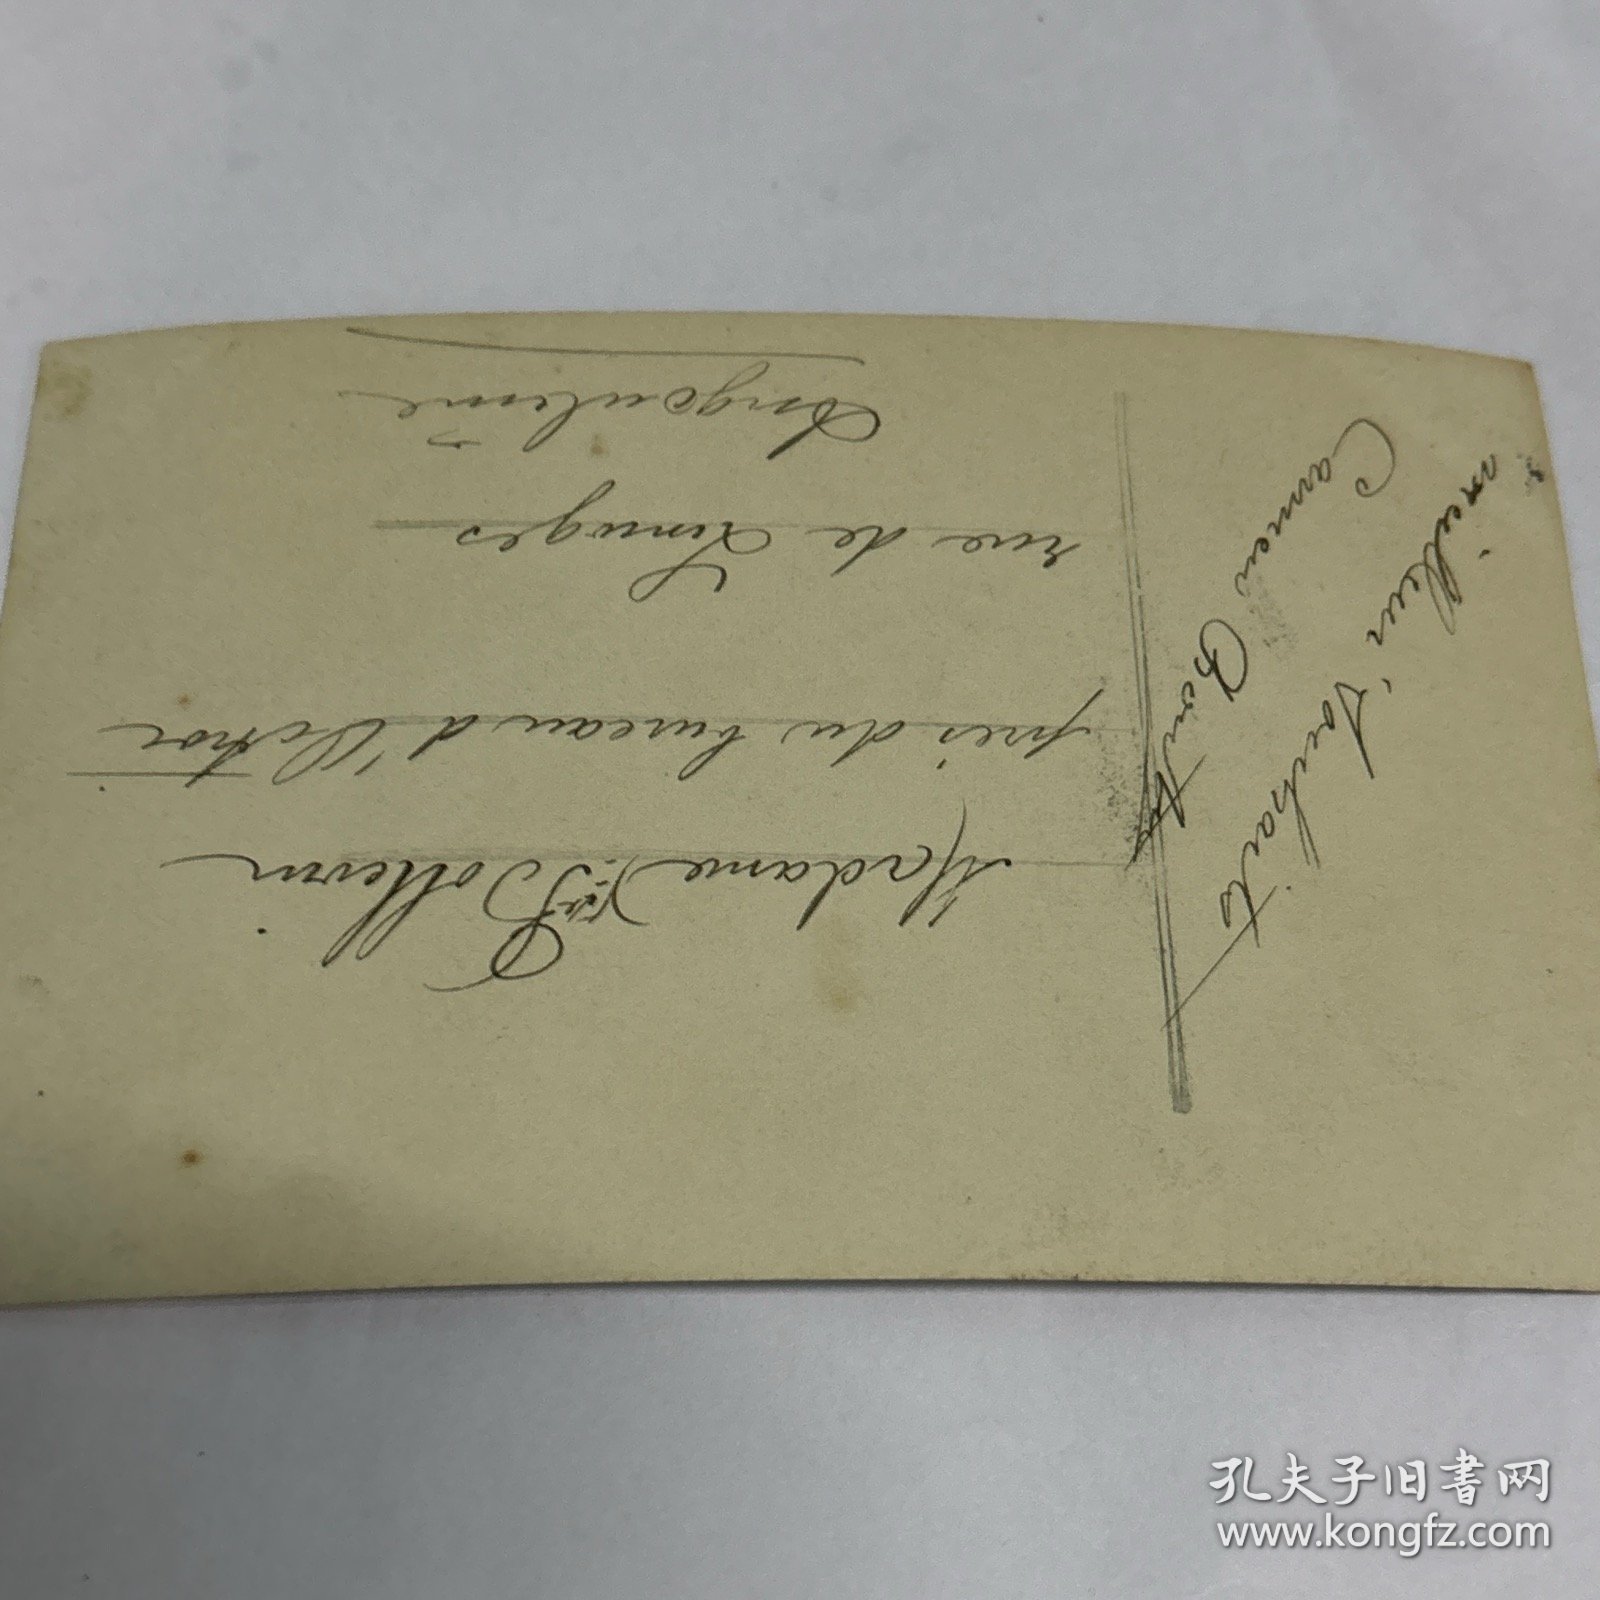 meilleurs souhaits
Carmen
Madame Vve
près du bureau d'Octroi
rue de Limoges
Angoulême
孔夫子旧书网
www.kongfz.com